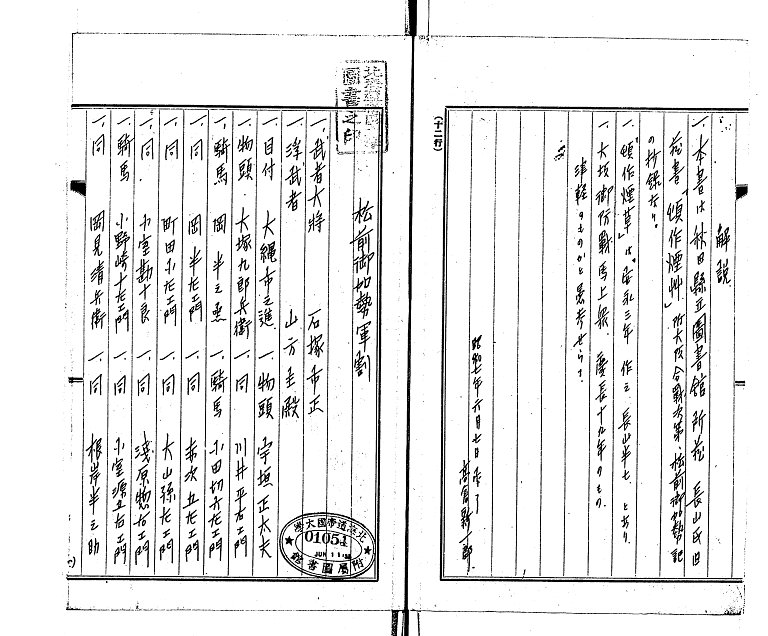 解説
一、本書は秋田縣立圖書館所蔵 長山氏旧
蔵書「煩作煙艸」所大阪合戦次第、松前御加勢記
の抄録なり。
一、「煩作煙草」は安永三年 作之 長山半七 とあり
一、大坂御防戰馬上衆 慶長十九年のもの
津軽のものかと思考せらる。
昭和七年六月七日
高倉新一郎
(十二行)
松前御加勢軍割
一、武者大将 石塚市正
一、浮武者 山方主殿
一、目付 大縄市之進 一、物頭 宇垣正太夫
一、物頭 大塚九郎兵衛 一、同 川井平右エ門
一、騎馬 岡半之丞 一、騎馬 小田切六左エ門
一、同 岡半左エ門 一、同 赤次五左エ門
一、同 町田小左エ門 一、同 大山孫左エ門
一、同 小室勘十良 一、同 淺原惣右エ門
一、騎馬 小野崎十左エ門 一、同 小室源五右エ門
一、同 岡見清兵衛 一、同 根岸半之助
圖書之印
北海道帝國大學
01051
JUN 11
附屬圖書館